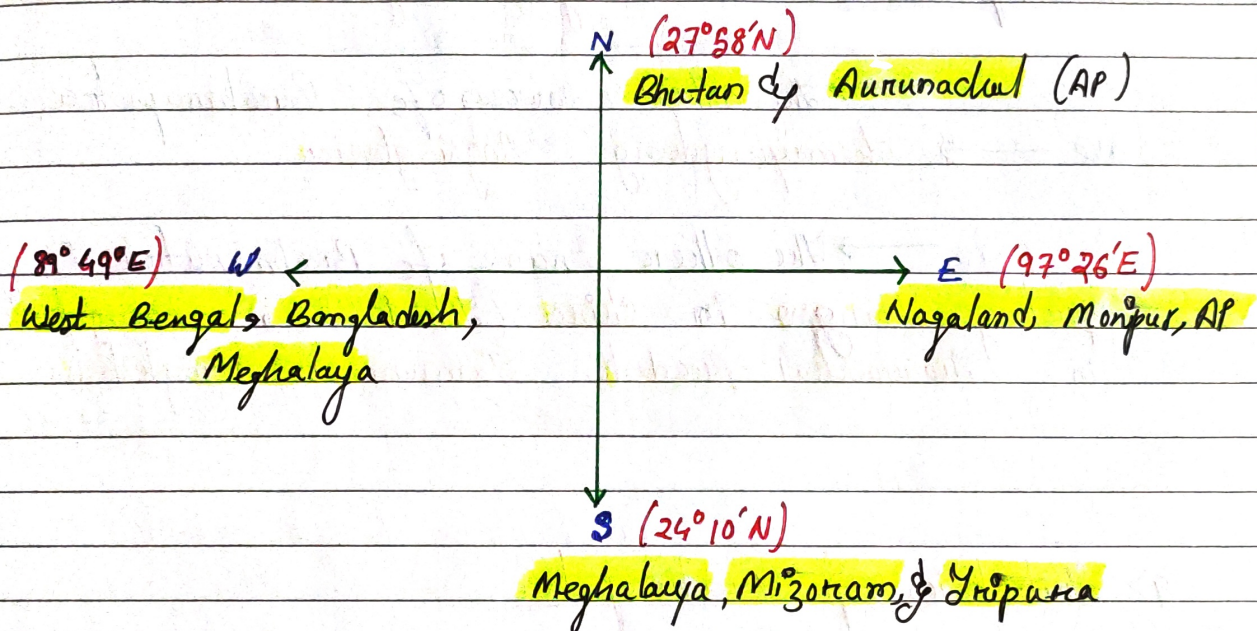 N (27°58'N)
Bhutan & Aurunachal (AP)
(89°49°E) W
E (97°26'E)
West Bengal, Bangladesh,
Meghalaya
Nagaland, Monipur, AP
S (24°10'N)
Meghalaya, Mizoram, & Tripura